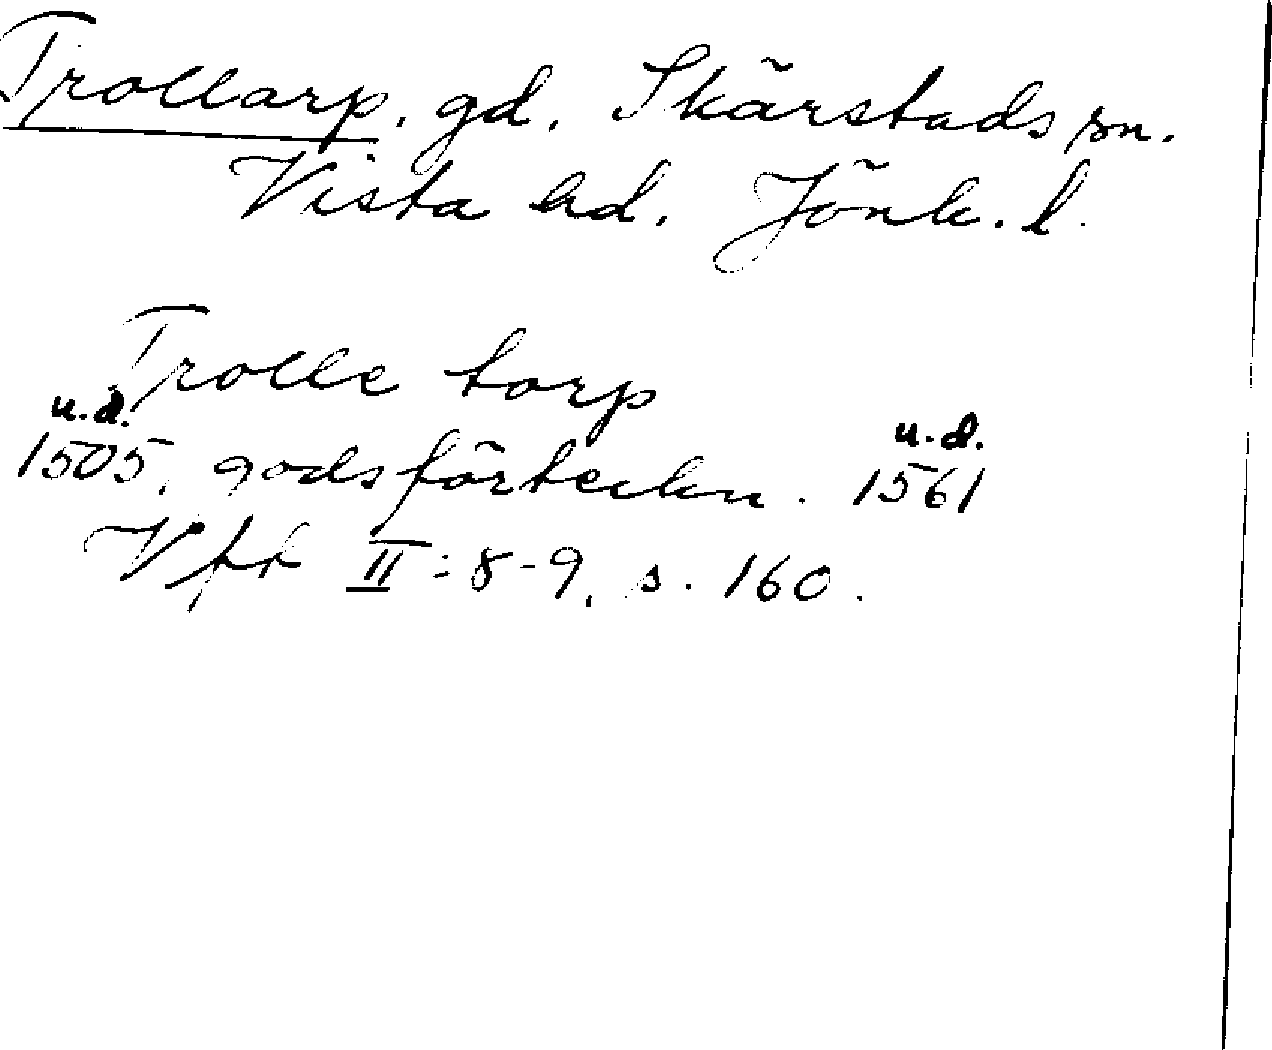 Trollarp, gd, Skärstads sn.
Vista hd. Jönk. l.
Trolle torp
u.d. u.d.
1505, godsförteckn. 1561
Vff II:8-9, s. 160.